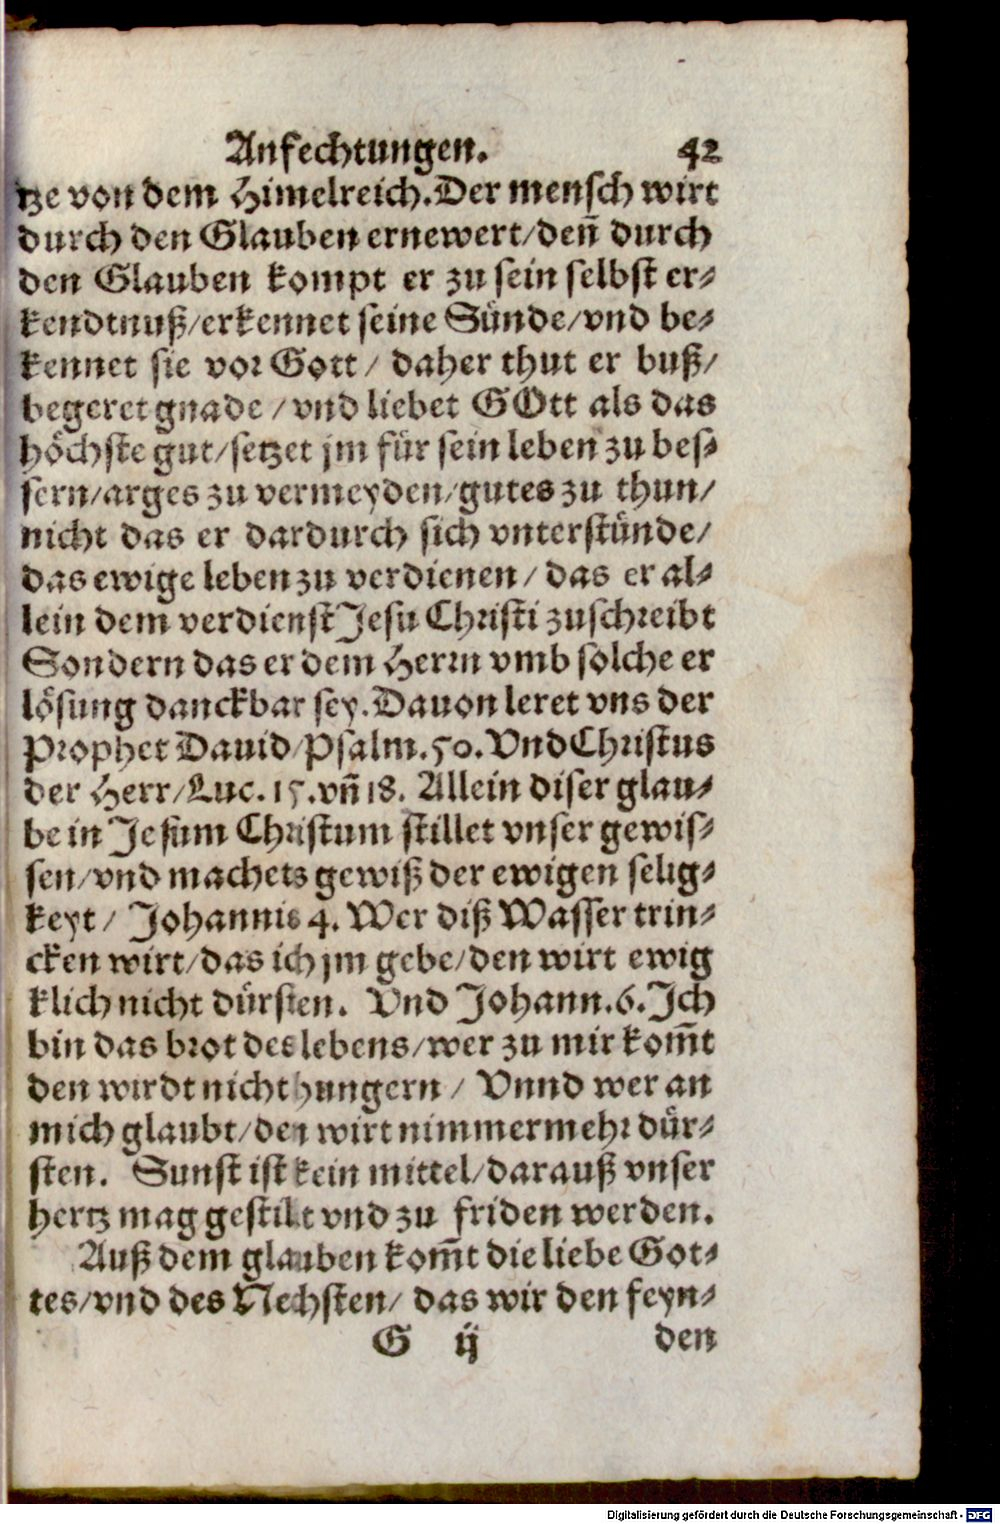 Anfechtungen. 42
tze von dem Himelreich. Der mensch wirt
durch den Glauben ernewert/ den̄ durch
den Glauben kompt er zu sein selbst er-
kendtnuß/ erkennet seine Sünde/ vnd be-
kennet sie vor Gott/ daher thut er buß/
begeret gnade/ vnd liebet GOtt als das
höchste gut/ setzet jm für sein leben zu bes-
sern/ arges zu vermeyden/ gutes zu thun/
nicht das er dardurch sich vnterstünde/
das ewige leben zu verdienen/ das er al-
lein dem verdienst Jesu Christi zuschreibt
Sondern das er dem Herrn vmb solche er
lösung danckbar sey. Dauon leret vns der
Prophet Dauid/ Psalm. 50. Vnd Christus
der Herr/ Luc. 15. vn̄ 18. Allein diser glau-
be in Jesum Christum stillet vnser gewis-
sen/ vnd machets gewiß der ewigen selig-
keyt/ Johannis 4. Wer diß Wasser trin-
cken wirt/ das ich jm gebe/ den wirt ewig
klich nicht dürsten. Vnd Johann. 6. Ich
bin das brot des lebens/ wer zu mir kom̄t
den wirdt nicht hungern/ Vnnd wer an
mich glaubt/ den wirt nimmermehr dür-
sten. Sunst ist kein mittel/ darauß vnser
hertz mag gestilt vnd zu friden werden.
Auß dem glauben kom̄t die liebe Got-
tes/ vnd des Nechsten/ das wir den feyn-
G ij den
Digitalisierung gefördert durch die Deutsche Forschungsgemeinschaft - DFG